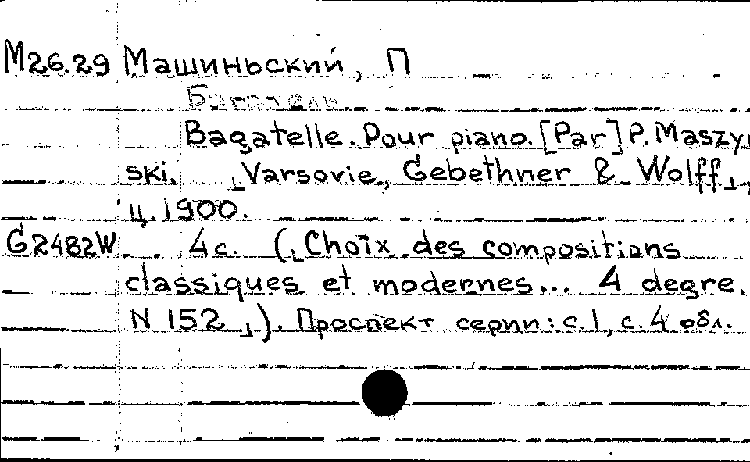 М26.29 Машиньский, П
Багатель
Bagatelle. Pour piano. [Par] P. Maszyn
ski. „Varsovie„, Gebethner & Wolff„,
ц. 1900.
G2482W 4 с. („Choix des compositions
classiques et modernes... 4 degre.
N 152„). Проспект серии: с. 1, с. 4 обл.